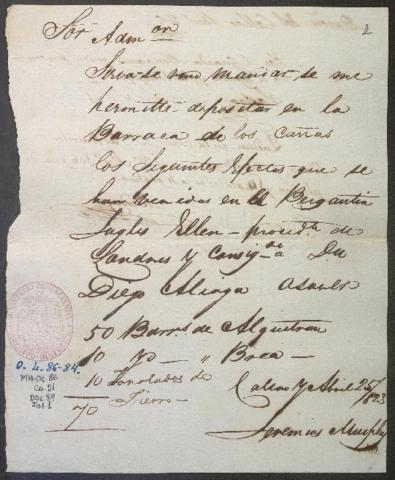 2
Sor Admon
Sirvase vmd mandar se me
permitta depositar en la
Barraca de los cañas
los siguientes efectos que se
han venidas en el Bergantin
Ingles Ellen - procidte de
Londres y Consigda Dn
Diego Aliaga asaver
50 Barrs. de Alquitran
10 Yd — " Brea —
10 Toneladas de
Fierro —
70
Callao y Abril 25/823
Jeremias Murphy
O. L. 86-84.
MH-OL. 86
Ca. 21
Doc 84
Fol. 1